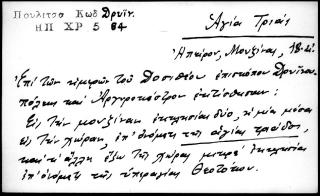 Πουλιτσα Κωδ Δρυϊν.
ΗΠ ΧΡ 5 64
Ἁγία Τριάς
Ἠπείρου, Μουζίνας, 18
Ἐπὶ τῶν ἡμερῶν τοῦ Δοσιθέου ἐπισκόπου Δρυϊνου
πόλεως καὶ Ἀργυροκάστρου ἐκτίσθησαν:
Εἰς τὴν μουζίναν ἐκκλησίαι δύο, ἡ μία μέσα
εἰς τὴν χώραν, ἐπ' ὀνόματι τῆς ἁγίας τριάδος,
καὶ ἡ ἄλλη ἔξω τῆς χώρας μικρὰ ἐκκλησία
ἐπ' ὀνόματι τῆς ὑπεραγίας Θεοτόκου.